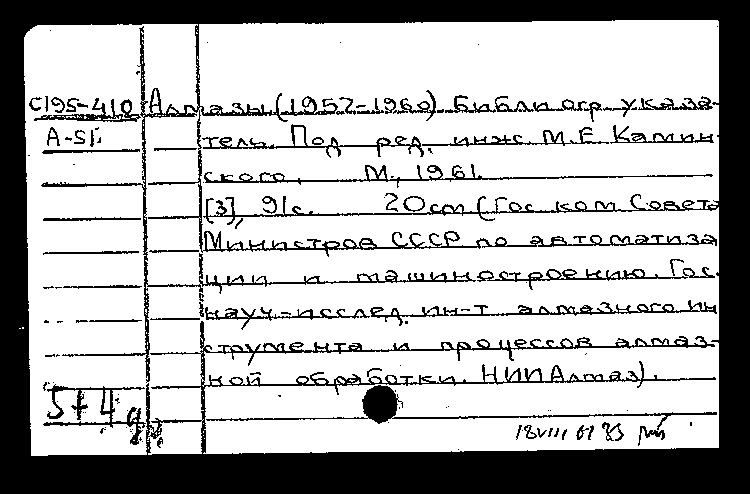 С195-410 Алмазы (1957-1960) библиогр. указа-
А-51. тель. Под ред. инж. М.Е. Камин-
ского, М., 1961.
[3], 91с. 20cm (Гос ком Совета
Министров СССР по автоматиза
ции и машиностроению. Гос.
науч-исслед. ин-т алмазного ин
струмента и процессов алмаз-
ной обработки. НИИАлмаз).
5+4
18VIII 61 83